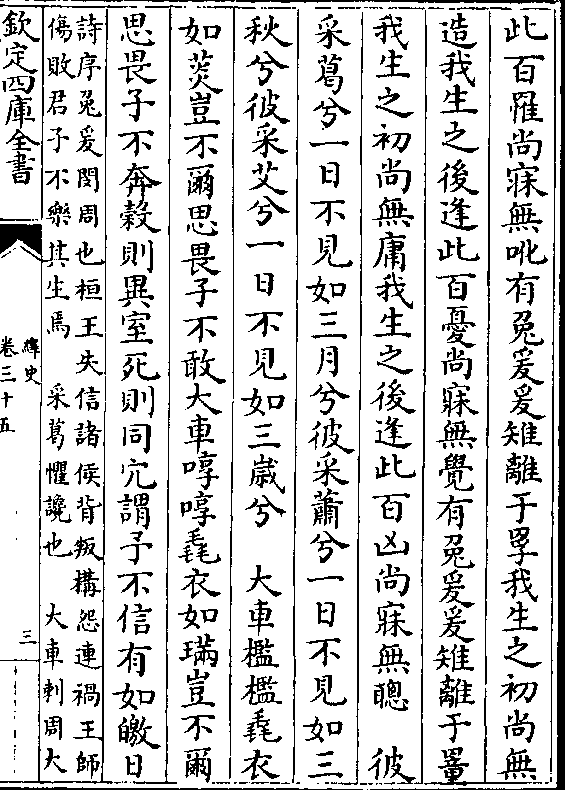 此百罹尚寐無吪有兔爰爰雉離于罦我生之初尚無
造我生之後逢此百憂尚寐無覺有兔爰爰雉離于罿
我生之初尚無庸我生之後逢此百凶尚寐無聰　彼
采葛兮一日不見如三月兮彼采蕭兮一日不見如三
秋兮彼采艾兮一日不見如三歳兮　大車檻檻毳衣
如菼豈不爾思畏子不敢大車啍啍毳衣如璊豈不爾
思畏子不奔榖則異室死則同穴謂予不信有如皦日
詩序兔爰閔周也桓王失信諸侯背叛搆怨連禍王師
傷敗君子不樂其生焉　采葛懼讒也　大車刺周大
欽定四庫全書
繹史
卷三十五
三